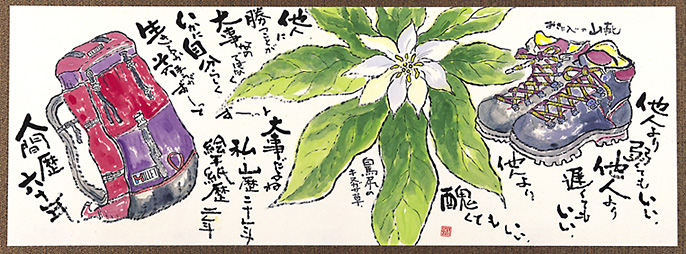 お気に入りの山靴
他人より
弱くてもいい
他人より
遅くても
いい
他人より
醜くてもいい
鳥泉の
キヌガサ草
他人に
勝つことが
大事なのではなく
いかに自分らしく
大事ですよね
私・山歴二十六年
絵手紙歴二年
人間歴
六十年
MILLET